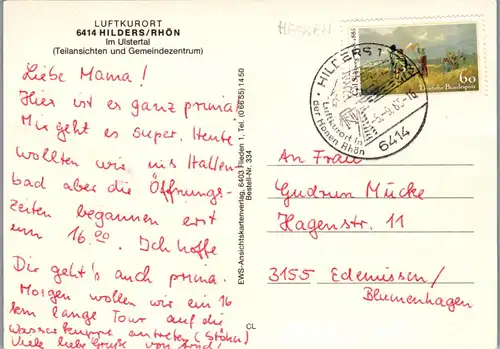 LUFTKURORT
6414 HILDERS/RHÖN
Im Ulstertal
(Teilansichten und Gemeindezentrum)
Liebe Mama!
Hier ist es ganz prima!
Mir geht es super. Heute
wollten wir ins Hallen-
bad aber die Öffnungs-
zeiten begannen erst
um 16.00. Ich hoffe
Dir geht's auch prima.
Morgen wollen wir ein 16
km lange Tour auf die
Wasserkuppe antreten (Stöhn)
Viele liebe Grüße von
EWS-Ansichtskartenverlag, 6403 Flieden 1, Tel. (06655) 1450
Bestell-Nr. 334
CL
HESSEN
60
Deutsche Bundespost
HILDERS 1
Luftkurort in
der Hohen Rhön
6414
An Frau
Gudrun Mücke
Hagenstr. 11
3155 Edemissen/
Blumenhagen